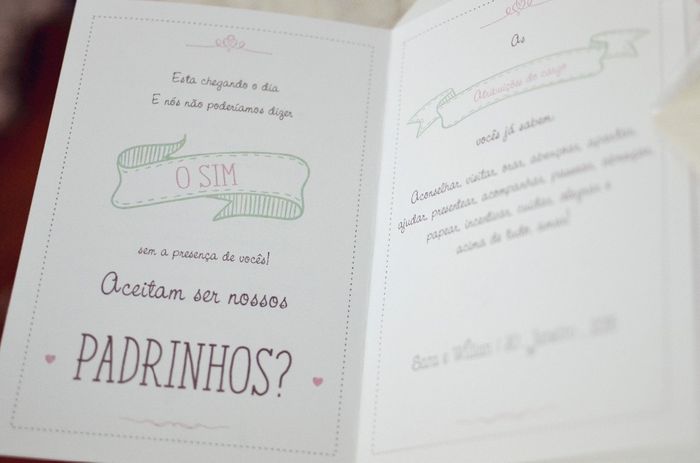 Esta chegando o dia
E nós não poderíamos dizer
O SIM
sem a presença de vocês!
Aceitam ser nossos
PADRINHOS?
As
Atribuições do cargo
vocês já sabem:
Aconselhar, visitar, orar, abençoar,
ajudar, presentear, acompanhar, pessoas,
papear, incentivar, cuidar, alegrar e
acima de tudo, amar!
Sara e